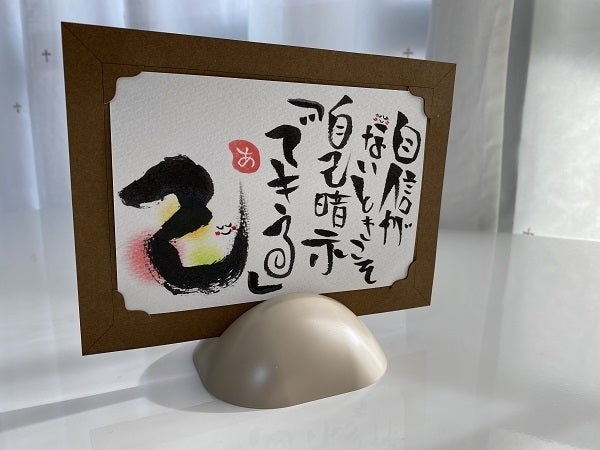 自信が
ないときこそ
自己暗示
『できる』
己
あ